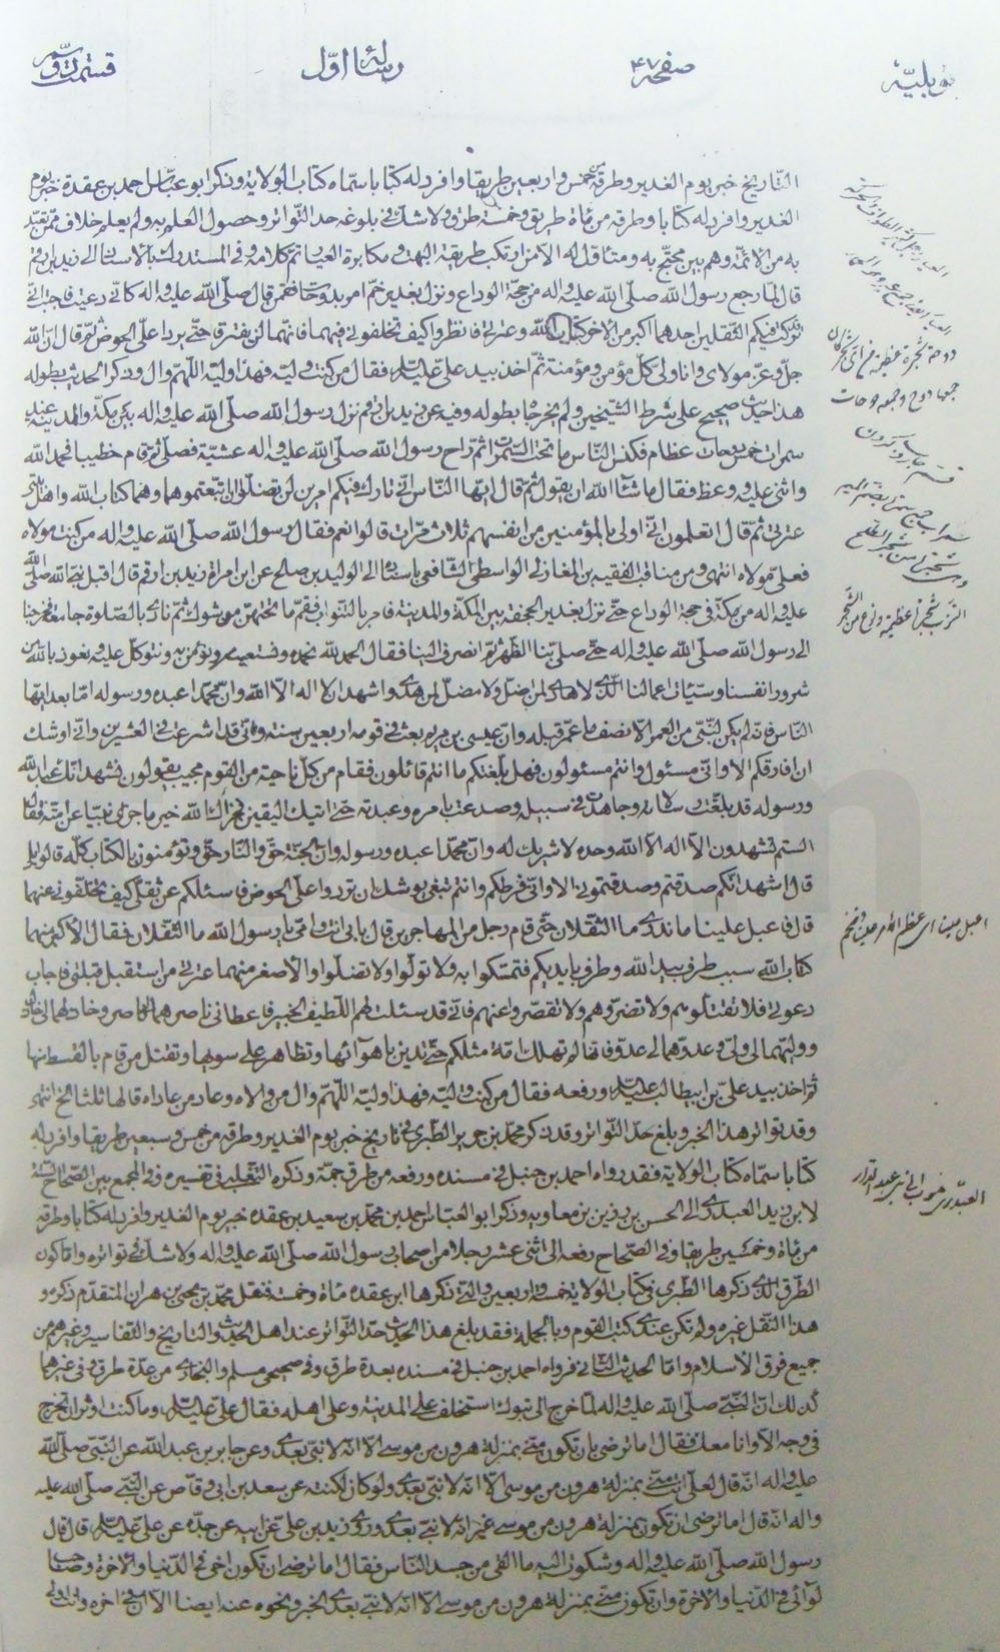 صفحه ۴۷
رسالهٔ اوّل
قسمت دوّم
التّاريخ خبر يوم الغدير وطرقه خمس واربعين طريقا وافرد له كتابا سمّاه كتاب الولاية وذكر ابو عبّاس احمد بن عقدة خبر يوم
الغدير وافرد له كتابا وطرقه من مأة طريق وخمسة طرق ولا شكّ فى بلوغه حدّ التّواتر وحصول العلم به ولم يعلم خلاف ممّن يعتدّ
به من الأئمّة وهم بين محتجّ به ومتأوّل له الّا من ارتكب طريقة البهت ومكابرة العيان تمّ كلامه وفى المستدرك بالاسناد الى زيد بن ارقم
قال لمّا رجع رسول الله صلّى الله عليه واله من حجّة الوداع ونزل بغدير خمّ امر بدوحات فقممن قال صلّى الله عليه واله كانّى دعيت فاجبت انّى
تركت فيكم الثقلين احدهما اكبر من الاخر كتاب الله وعترتى فانظروا كيف تخلفونى فيهما فانّهما لن يفترقا حتّى يردا علىّ الحوض ثمّ قال انّ الله
جلّ وعزّ مولاى وانا ولى كلّ مؤمن ومؤمنة ثمّ اخذ بيد علىّ عليه السّلم فقال من كنت وليّه فهذا وليّه اللّهمّ وال وذكر الحديث بطوله
هذا حديث صحيح على شرط الشّيخين ولم يخرجا بطوله وفيه عن زيد بن ارقم نزل رسول الله صلّى الله عليه واله بين مكّة والمدينة عند
سمرات خمس دوحات عظام فكنس النّاس ما تحت السّمرات ثمّ راح رسول الله صلّى الله عليه واله عشيّة فصلّى ثمّ قام خطيبا فحمد الله
واثنى عليه ووعظ فقال ما شآء الله ان يقول ثمّ قال ايّها النّاس انّى تارك فيكم امرين لن تضلّوا ان اتّبعتموهما وهما كتاب الله واهل بيتى
عترتى ثمّ قال اتعلمون انّى اولى بالمؤمنين من انفسهم ثلاث مرّات قالوا نعم فقال رسول الله صلّى الله عليه واله من كنت مولاه
فعلىّ مولاه انتهى ومن مناقب الفقيه بن المغازلى الواسطى الشّافعى باسناده الى الوليد بن صالح عن ابن امرأة زيد بن ارقم قال اقبل نبىّ الله صلّى الله
عليه واله من مكّة فى حجة الوداع حتّى نزل بغدير الجحفة بين المكّة والمدينة فامر بالدّوحات فقمّ ما تحتهنّ من شوك ثمّ نادى بالصّلوة جامعة فخرجنا
الى رسول الله صلّى الله عليه واله حتّى صلّى بنا الظّهر ثمّ انصرف الينا فقال الحمد لله نحمده ونستعينه ونؤمن به ونتوكّل عليه ونعوذ بالله من
شرور انفسنا وسيّئات اعمالنا الّذى لا هادى لمن اضلّ ولا مضلّ لمن هدى واشهد ان لا اله الّا الله وانّ محمّدا عبده ورسوله امّا بعد ايّها
النّاس فانّه لم يكن لنبىّ من العمر الّا نصف ما عمّر قبله وانّ عيسى بن مريم بعث فى قومه اربعين سنة وانّى قد اشرعت فى العشرين وانّى اوشك
ان افارقكم الا وانّى مسئول وانتم مسئولون فهل بلّغتكم ما انتم قائلون فقام من كلّ ناحية من القوم مجيب يقولون نشهد انّك عبد الله
ورسوله قد بلّغت رسالاته وجاهدت فى سبيله وصدعت بامره وعبدته حتّى اتيك اليقين فجزاك الله خير ما جزى نبيّا عن امّته فقال
الستم تشهدون الّا اله الّا الله وحده لا شريك له وانّ محمّدا عبده ورسوله وانّ الجنّة حقّ والنّار حقّ وتؤمنون بالكتاب كلّه قالوا بلى
قال اشهد انّكم صدقتم وصدقتمونى الا وانّى فرطكم وانتم تبعى يوشك ان تردوا علىّ الحوض فاسئلكم عن ثقلىّ كيف تخلفونى فيهما
قال فاعيل علينا ما ندرى ما الثّقلان حتّى قام رجل من المهاجرين قال بابى انت وامّى يا رسول الله ما الثّقلان فقال الأكبر منهما
كتاب الله سبب طرف بيد الله وطرف بايديكم فتمسّكوا به ولا تولّوا ولا تضلّوا والأصغر منهما عترتى من استقبل قبلتى واجاب
دعوتى فلا تقتلوهم ولا تضرّوهم ولا تقصّروا عنهم فانّى قد سئلت لهم اللّطيف الخبير فاعطانى ناصرهما لى ناصر وخاذلهما لى خاذل
ووليّهما لى ولىّ وعدوّهما لى عدوّ فانّها لم تهلك امّة مثلكم حتّى تدين باهوآئها وتظاهر على نبيها وتقتل من قام بالقسط منها
ثمّ اخذ بيد علىّ بن ابيطالب عليه السّلم ورفعه فقال من كنت وليّه فهذا وليّه اللّهمّ وال من والاه وعاد من عاداه قالها ثلثا الخ انتهى
وقد تواتر هذا الخبر وبلغ حدّ التّواتر وقد ذكر محمّد بن جرير الطّبرى فى تاريخ خبر يوم الغدير وطرقه من خمس وسبعين طريقا وافرد له
كتابا سمّاه كتاب الولاية فقد رواه احمد بن حنبل فى مسنده ورفعه من طرق جمّة وذكره الثّعلبى فى تفسيره وفى الجمع بين الصّحاح السّتّة
لابن رزين العبدرى الى الحسن بن رزين بن معاوية وذكر ابو العبّاس احمد بن محمّد بن سعيد بن عقده خبر يوم الغدير وافرد له كتابا وطرقه
من مأة وخمسين طريقا وفى الصّحاح رفعه الى اثنى عشر رجلا من اصحاب رسول الله صلّى الله عليه واله ولا شكّ فى تواتره وامّا كون
الطّرق الّذى ذكرها الطّبرى فى كتاب الولاية خمسة واربعين والّتى ذكرها ابن عقده مأة وخمسة فنقل محمّد بن يحيى بن بهران المتقدّم ذكره و
هذا النّقل غيره ولم تكن عندى كتب القوم وبالجملة فقد بلغ هذا الحديث حدّ التّواتر عند اهل الحديث والتاريخ والتفاسير وغيرهم من
جميع فرق الأسلام وامّا الحديث الثّانى فرواه احمد بن حنبل فى مسنده بعدة طرق وفى صحيحى مسلم والبخارى من عدّة طرق وفى غيرهما
كذلك انّ النّبىّ صلّى الله عليه واله لمّا خرج الى تبوك استخلف على المدينة وعلى اهله فقال علىّ عليه السّلم وما كنت اوثر ان تخرج
فى وجه الّا وانا معك فقال اما ترضى بان تكون منّى بمنزلة هرون من موسى الّا انّه لا نبىّ بعدى وعن جابر بن عبد الله عن النّبىّ صلّى الله
عليه واله انّه قال لعلى انت منّى بمنزلة هرون من موسى الّا انّه لا نبىّ بعدى ولو كان لكنته عن سعد بن ابى وقّاص عن النّبىّ صلّى الله عليه
واله انّه قال اما ترضى ان تكون بمنزلة هرون من موسى غير انّه لا نبىّ بعدى وروى زيد بن على عن ابيه عن جدّه عن علىّ عليه السّلم قال قال
رسول الله صلّى الله عليه واله وشكوت اليه ما القى من حسد النّاس فقال اما ترضى ان تكون اخى فى الدّنيا والاخرة وصاحب
لوآئى فى الدّنيا والاخرة وان تكون منّى بمنزلة هرون من موسى الّا انّه لا نبىّ بعدى الخبر ونحوه عنه ايضا الّا انّ فى اخره وانت
دوحة شجرة عظيمة من اى شجر كان
جمعها دوح وجمعه دوحات